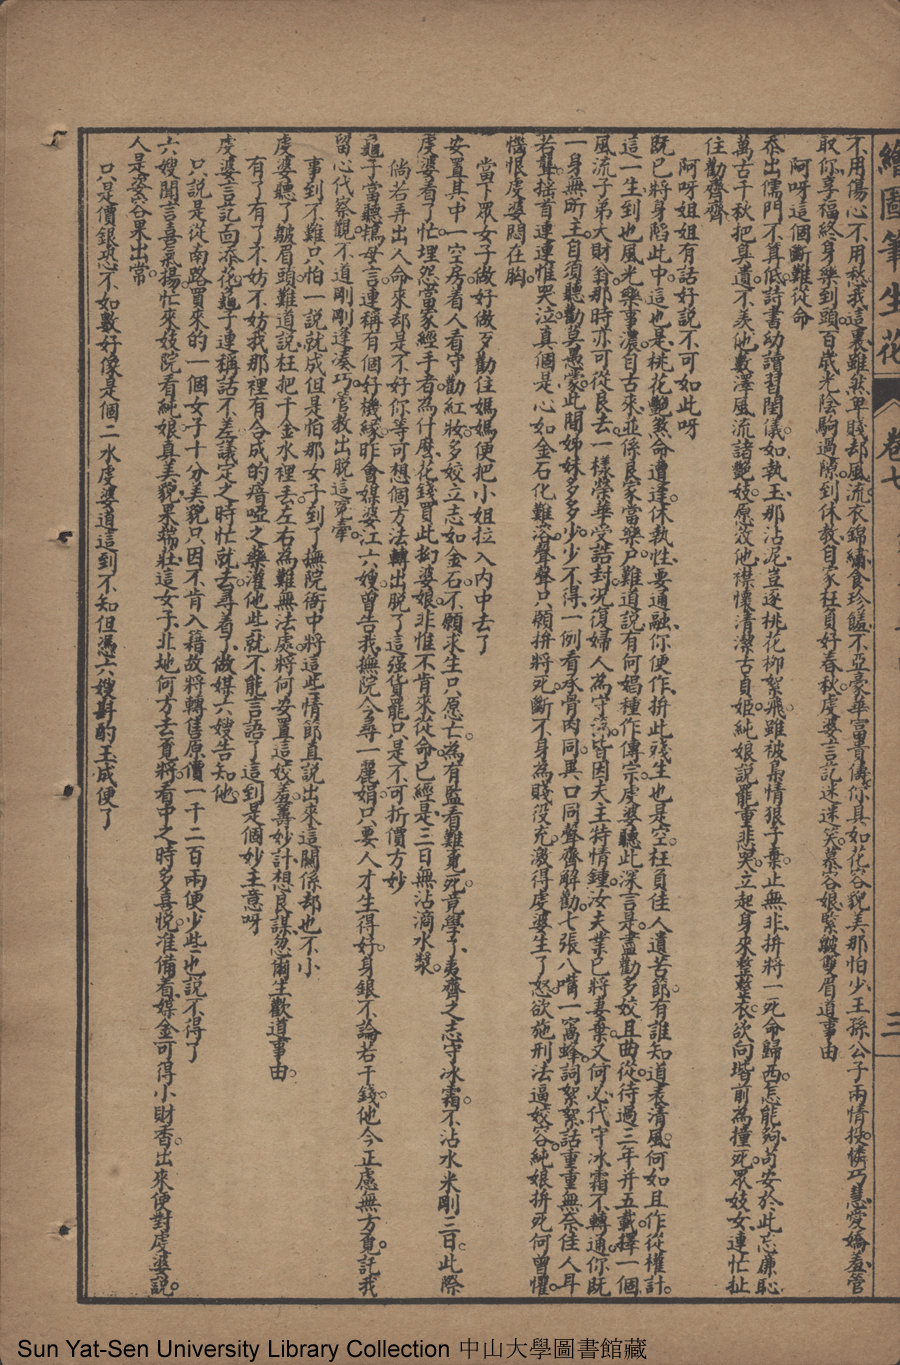 繪圖筆生花 卷七 三
不用傷心不用愁我這裏雖然卑賤却風流衣錦繡食珍饈不亞豪華富貴儔你具如花容貌美那怕少王孫公子兩情投憐巧慧愛嬌羞管
取你享福終身樂到頭百歲光陰駒過隙到休教自家枉負好春秋虔婆言記迷迷笑慕容娘緊皺雙眉道事由
阿呀這個斷難從命
忝出儒門不算低詩書幼讀習閨儀如執玉那沾泥豈逐桃花柳絮飛雖被梟情狠子棄止無非拚將一死命歸西怎能夠苟安於此忘廉恥
萬古千秋把臭遺不羨他數澤風流諸艷妓原笑他襟懷清潔古貞姬純娘說罷重悲哭立起身來整整衣欲向堦前為撞死眾妓女連忙扯
住勸齊齊
阿呀姐姐有話好說不可如此呀
既已將身陷此中這也是桃花艷煞命遭逢休執性要通融你便作拚此殘生也是空枉負佳人遺苦節有誰知道表清風何如且作從權計
這一生到也風光樂事濃自古來並係良家當樂戶難道說有何娼種作傳宗虔婆聽此深言是盡勸多姣且曲從待過三年并五載擇一個
風流子弟大財翁那時亦可從良去一樣榮華受誥封況復婦人為守節皆因夫主特情鍾汝夫業已將妻棄又何必代守冰霜不轉通你既
一身無所主自須聽勸莫愚蒙此間姊妹多多少少不得一例看承骨肉同異口同聲齊解勸七張八嘴一窩蜂詞絮絮話重重無奈佳人耳
若聾搖首連連惟哭泣真個是心如金石化難溶聲聲只願拚將死斷不身為賤役充激得虔婆生了怒欲施刑法逼姣容純娘拚死何曾懼
惱恨虔婆悶在胸
當下眾女子做好做歹勸住媽媽便把小姐拉入內中去了
安置其中一空房着人看守勸紅妝多姣立志如金石不願求生只愿亡為有監看難覓死竟學了夷齊之志守冰霜不沾水米剛三日此際
虔婆着了忙埋怨當家經手者為什麼花錢買此拗婆娘非惟不肯來從命已經是三日無沾滴水漿
倘若弄出人命來却是不好你等可想個方法轉出脫了這强貨罷只是不可折價方妙
龜子當聽媽母言連稱有個好機緣昨會媒婆江六嫂曾告我撫院今尋一麗娟只要人才生得好身銀不論若干錢他今正處無方覓託我
留心代察觀不道剛剛逢湊巧管教出脫這寃牽
事到不難只怕一說就成但是怕那女子到了撫院衙中將這些情節直說出來這關係却也不小
虔婆聽了皺眉頭難道說枉把千金水裡丟左右為難無法處將何安置這姣羞籌妙計想良謀忽爾生歡道事由
有了有了不妨不妨我那裡有合成的瘖啞之藥灌他些就不能言語了這到是個妙主意呀
虔婆言記面添花龜子連稱話不差議定之時忙就去尋着了做媒六嫂告知他
只說是從南路買來的一個女子十分美貌只因不肯入籍故將轉售原價一千二百兩便少些也說不得了
六嫂聞言喜氣揚忙來妓院看純娘真美貌果端莊這女子北地何方去覓將看中之時多喜悅准備着媒金可得小財香出來便對虔婆說
人是姿容果出常
只是價銀恐不如數好像是個二水虔婆道這到不知但憑六嫂斟酌王成便了
Sun Yat-Sen University Library Collection 中山大學圖書館藏